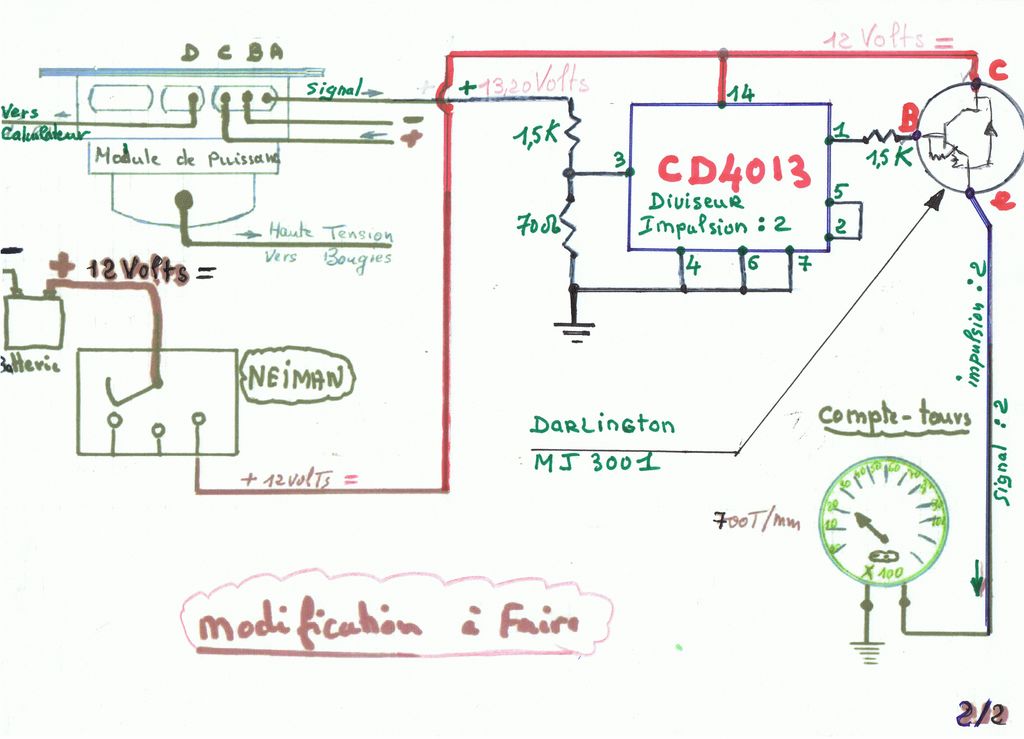 D C B A
12 Volts =
C
Signal
+ 13,20 Volts
Vers
Calculateur
-
+
14
1,5K
1
B
1,5K
Module de Puissance
3
CD4013
Diviseur
Impulsion : 2
5
2
e
700Ω
4
6
7
Haute Tension
Vers Bougies
-
+ 12 Volts =
Batterie
NEIMAN
impulsion : 2
Signal : 2
Darlington
MJ 3001
Compte-tours
+ 12 volTs =
700T/mm
10
20
X 100
Modification à Faire
2/2